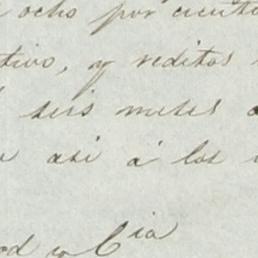 ocho por ciento
tivo, y reditos
seis meses
asi á los
od y Cia